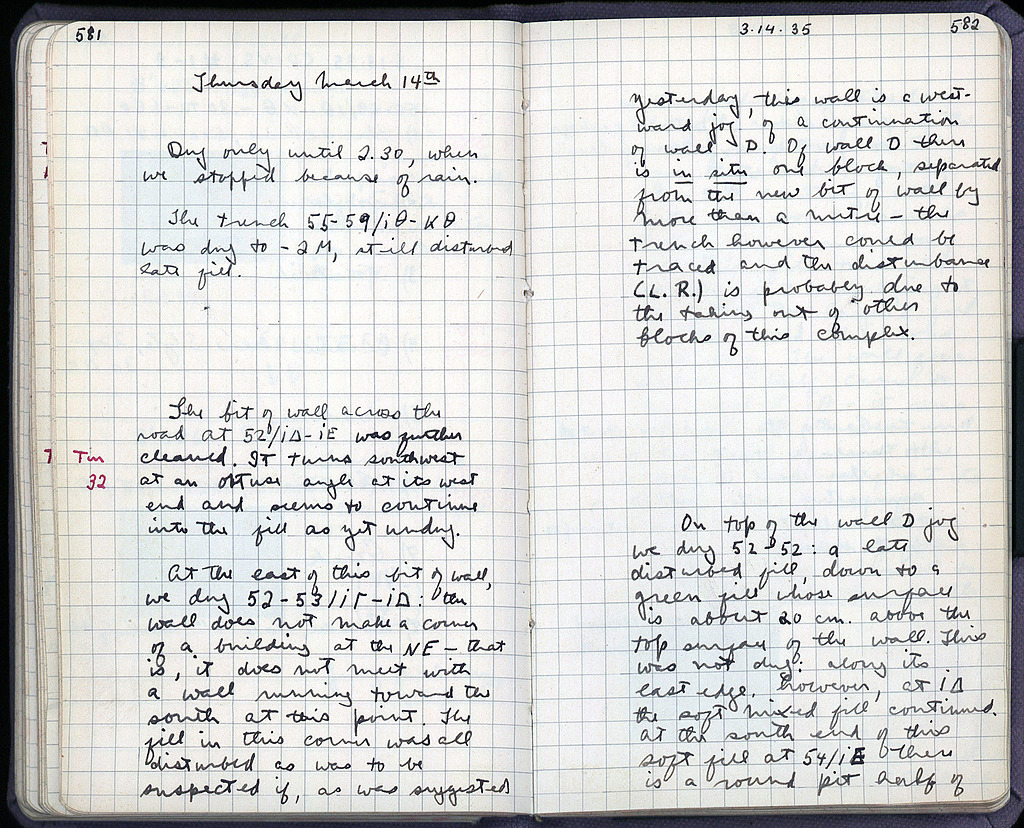 581
Thursday March 14th
Dug only until 2.30, when
we stopped because of rain.
The trench 55-59/ιθ-κθ
was dug to -2M, still disturbed
late fill.
The bit of wall across the
road at 52/ιΔ-ιΕ was further
7 Tin cleaned. It turns southwest
32 at an obtuse angle at its west
end and seems to continue
into the fill as yet undug.
At the east of this bit of wall,
we dug 52-53/ιΓ-ιΔ: the
wall does not make a corner
of a building at the NE – that
is, it does not meet with
a wall running toward the
south at this point. The
fill in this corner was all
disturbed as was to be
suspected if, as was suggested
3·14·35 582
yesterday, this wall is a west-
ward jog of a continuation
of wall D. Of wall D there
is in situ one block, separated
from the new bit of wall by
more than a metre – the
trench however could be
traced and the disturbance
(L.R.) is probably due to
the taking out of other
blocks of this complex.
On top of the wall D jog
we dug 52-52: a late
disturbed fill, down to a
green fill whose surface
is about 20 cm. above the
top surface of the wall. This
was not dug: along its
east edge, however, at ιΔ
the soft mixed fill continued.
At the south end of this
soft fill at 54/ιΕ there
is a round pit half of